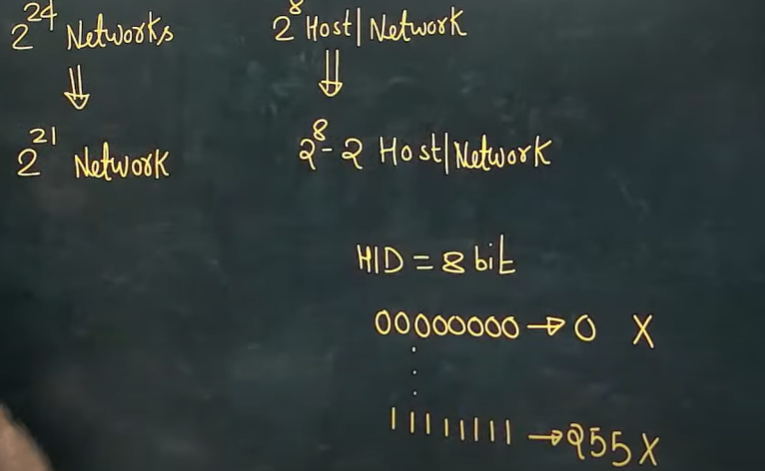 2^24 Networks
2^8 Host|Network
⇓
⇓
2^21 Network
2^8-2 Host|Network
HID = 8 bit
00000000 → 0 X
⋮
11111111 → 255 X